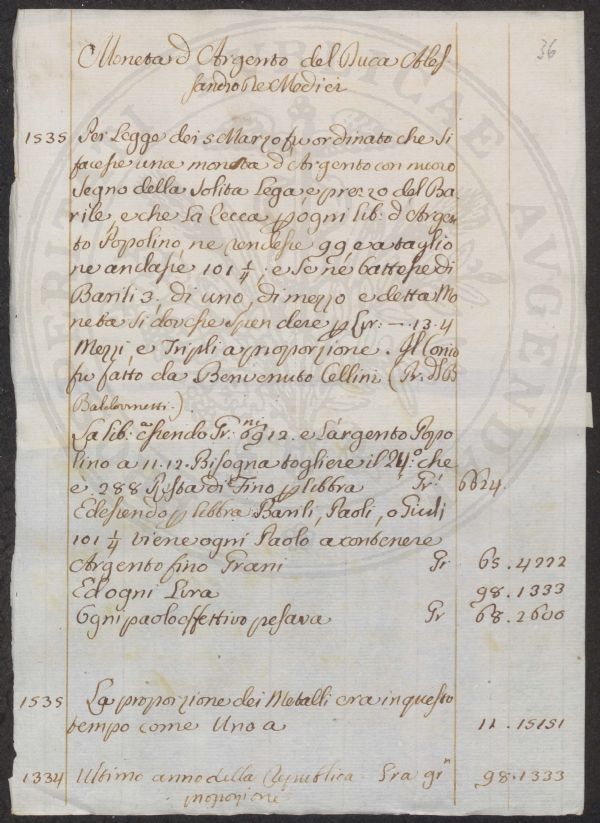 36
Moneta d'Argento del Duca Ales=
sandro de Medici
1535 Per Legge dei 5 Marzo fu ordinato che si
facesse una moneta d'Argento con nuovo
segno della solita Lega e prezzo del Ba
rile, e che la Zecca p ogni lib: d'Argen
to Popolino, ne rendesse 99 e a taglio
ne andasse 101 1/4, e se ne battesse di
Barili 3. di uno, di mezzo e detta Mo
neta si dovesse spendere p Lir: — 13. 4
Mezzi e Tripli a proporzione. Il Conio
fu fatto da Benvenuto Cellini (Pr:
Baldovinetti.)
La lib: essendo Gr: ni 6912. e l'argento Popo
lino a 11. 12. Bisogna togliere il 24.o che
e 288 Resta di Fino p libbra Gr: 6624.
Ed essendo p libbra Barili, Paoli, o Giuli
101 1/4 viene ogni Paolo a contenere
Argento fino Grani Gr 65. 4222
Ed ogni Lira 98. 1333
Ogni paolo effettivo pesava Gr 68. 2600
1535 La proporzione dei Metalli era in questo
tempo come Uno a 11. 15151
1334 Ultimo anno della Republica gr n 98. 1333
proporzione
COLLIGERIT PUBLICAE AUGENDAE